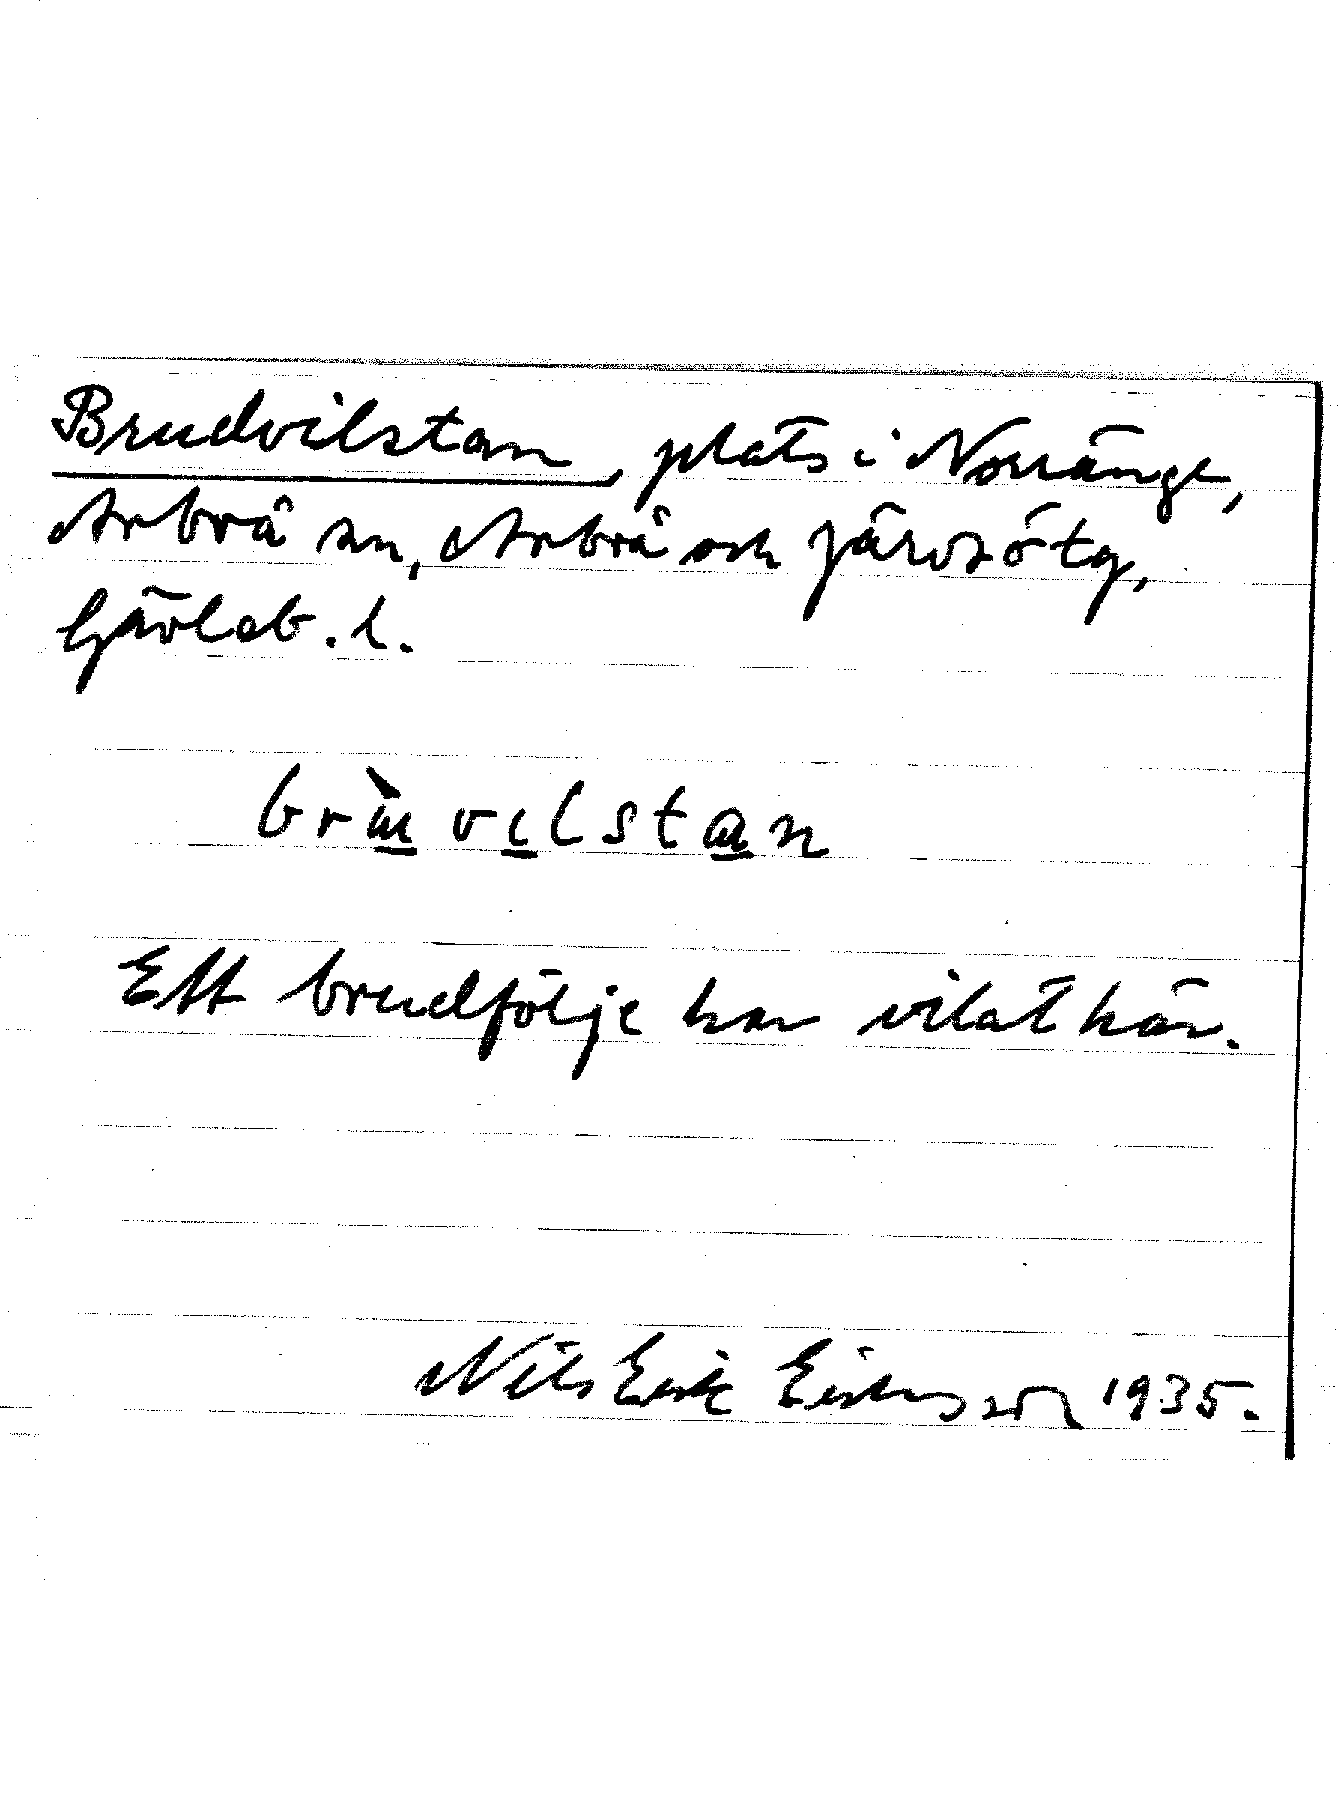 Brudvilstan, plats i Norränge,
Arbrå sn, Arbrå och Järvsö tg,
Gävleb. l.
brùvilstan
Ett brudfölje har vilat här.
Nils Erik Eriksson 1935.